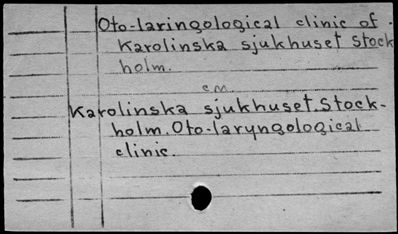 Oto-laringological clinic of
Karolinska sjukhuset Stock
holm.
cm.
Karolinska sjukhuset. Stock-
holm. Oto-laryngological
clinic.